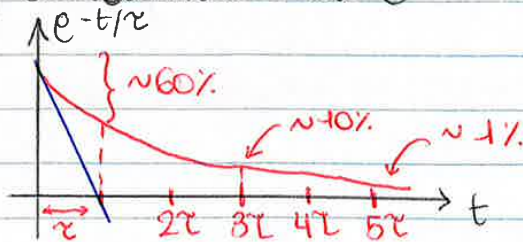 e -t/τ
~60%
~10%
~1%
t
τ 2τ 3τ 4τ 5τ